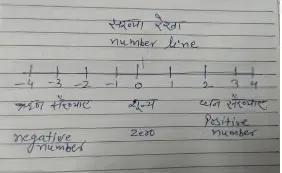 संख्या रेखा
number line
-4 -3 -2 -1 0 1 2 3 4
ऋण संख्याएं शून्य धन संख्याएं
negative number zero Positive number